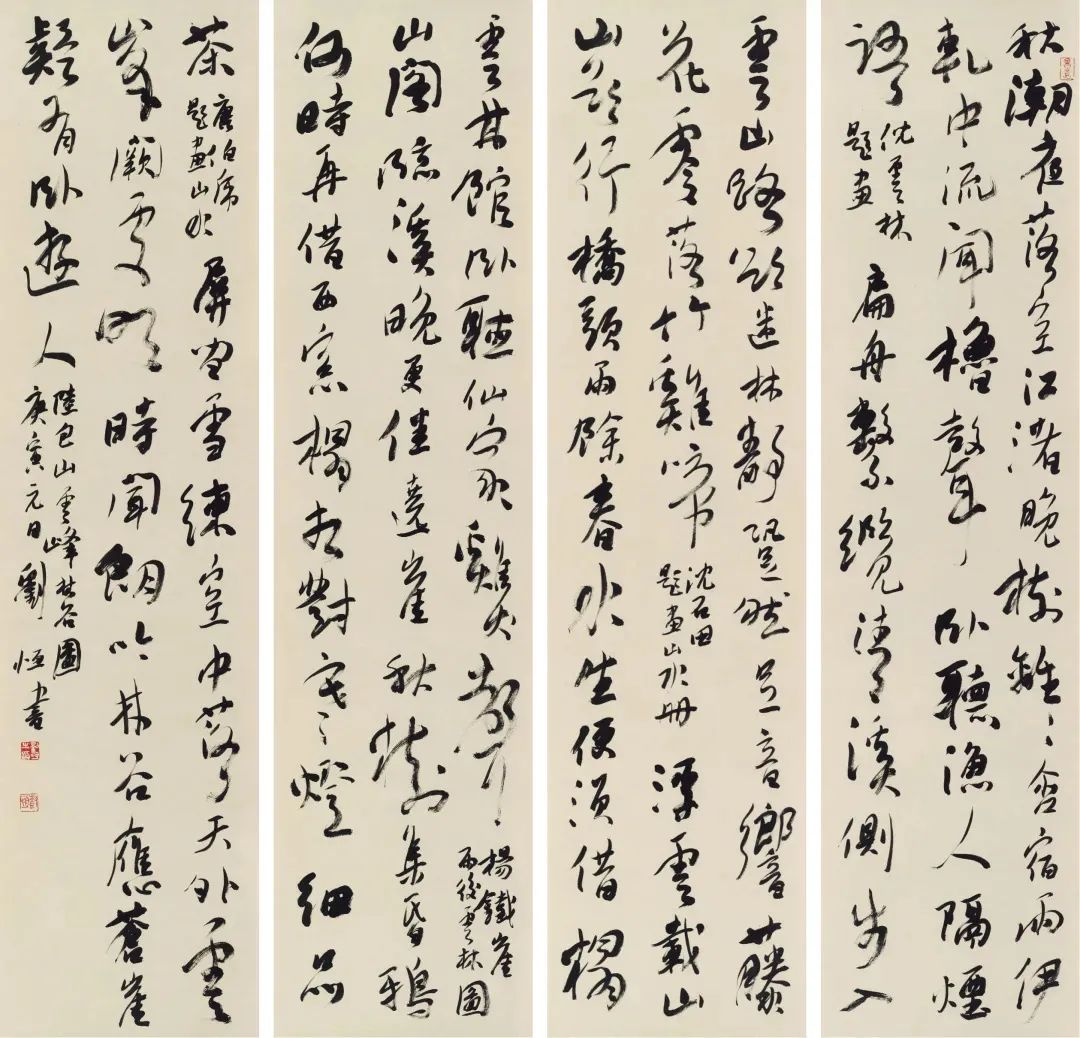 秋潮夜落空江渚晚樹離離含宿雨伊
軋中流聞櫓聲臥聽漁人隔煙
語
沈雲林
題畫
扁舟繫纜清溪側步入
雲山路欲迷林靜跫然足音響藤
花零落竹雞啼
沈石田
題畫山水冊
浮雲載山
山欲行橋頭雨餘春水生便須借榻
雲林館臥聽仙家雞犬聲
楊鐵崖
雨後雲林圖
山閣臨溪晚更佳繞崖秋樹集昏鴉
何時再借西窗榻相對寒燈細品
茶
唐伯虎
題畫山水
屏雪練空中落天外雲
峰闕處明時聞朗吟林谷應蒼崖
疑有臥遊人
陸包山雲峰林谷圖
庚寅元日劉恒書